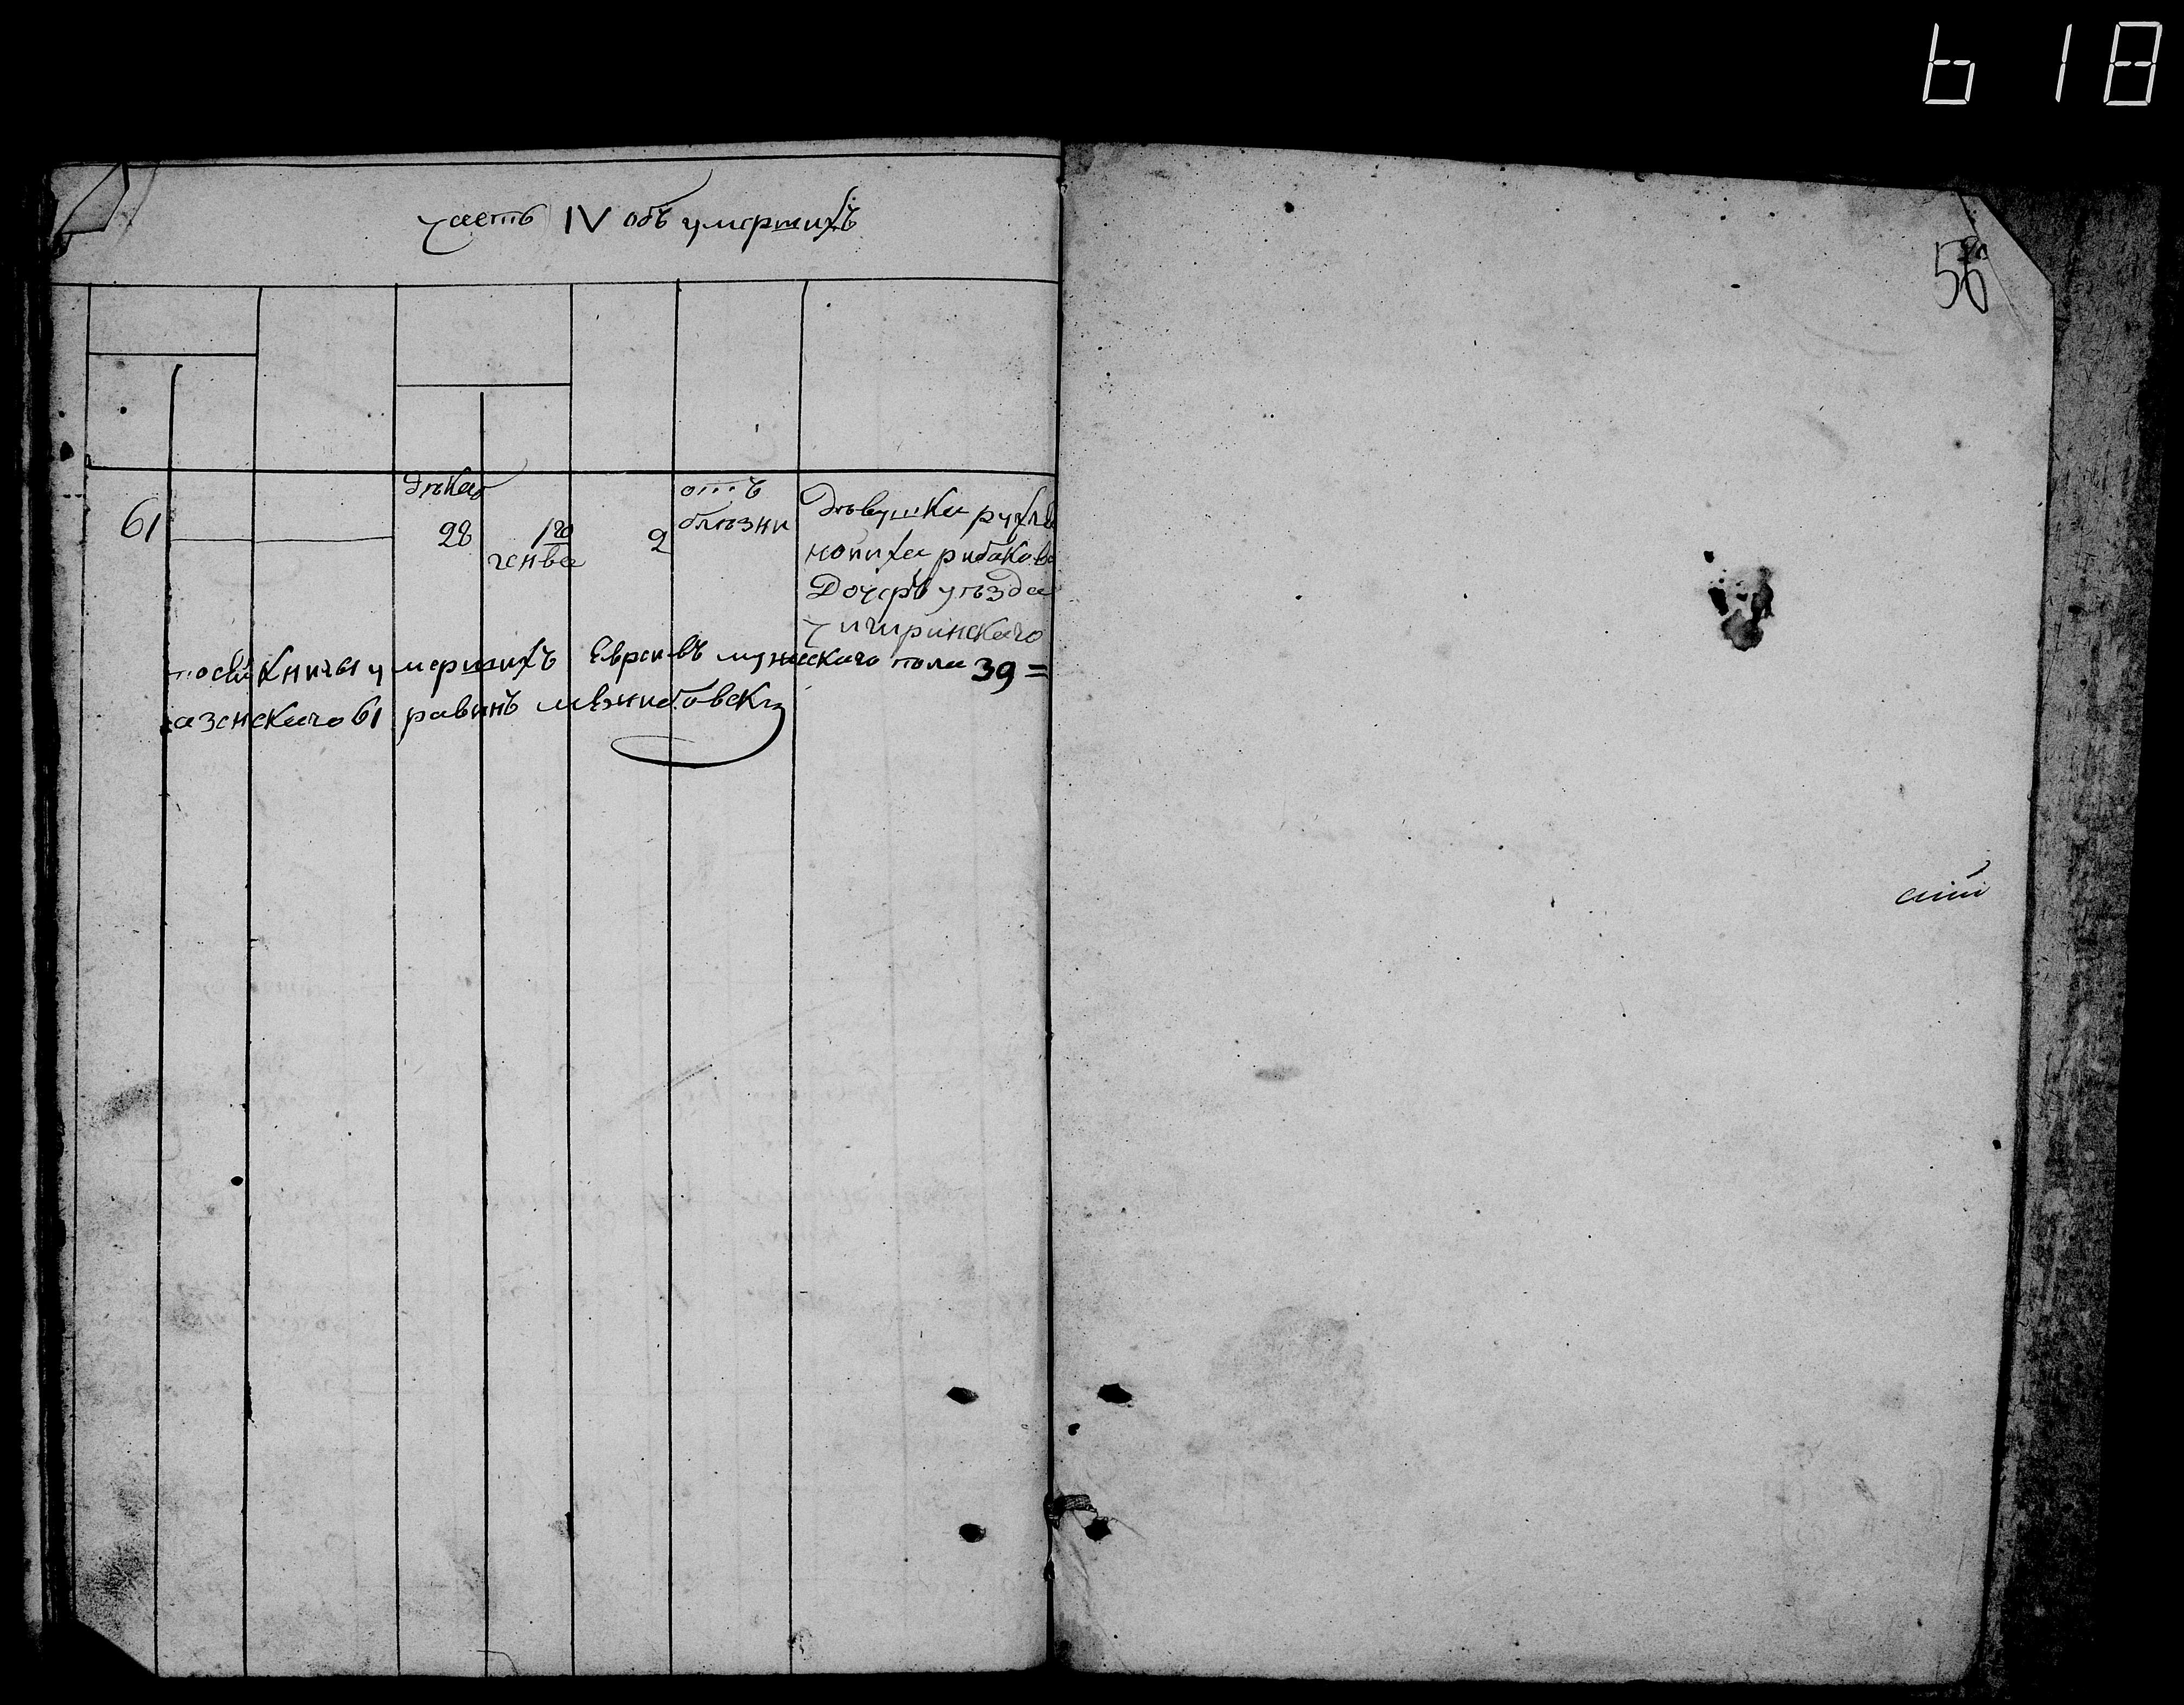 618
Часть IV объ умершихъ
56
Декаб
отъ
61
28
1 20
генва
2
болезни
Девушка рухля
нонихи рибакова
Дочеръ уезда
Чигиринскаго
посей Книги умершихъ Евреивъ мужескаго пола 39 =
аженскаго 61 равинъ межибовски
сiи